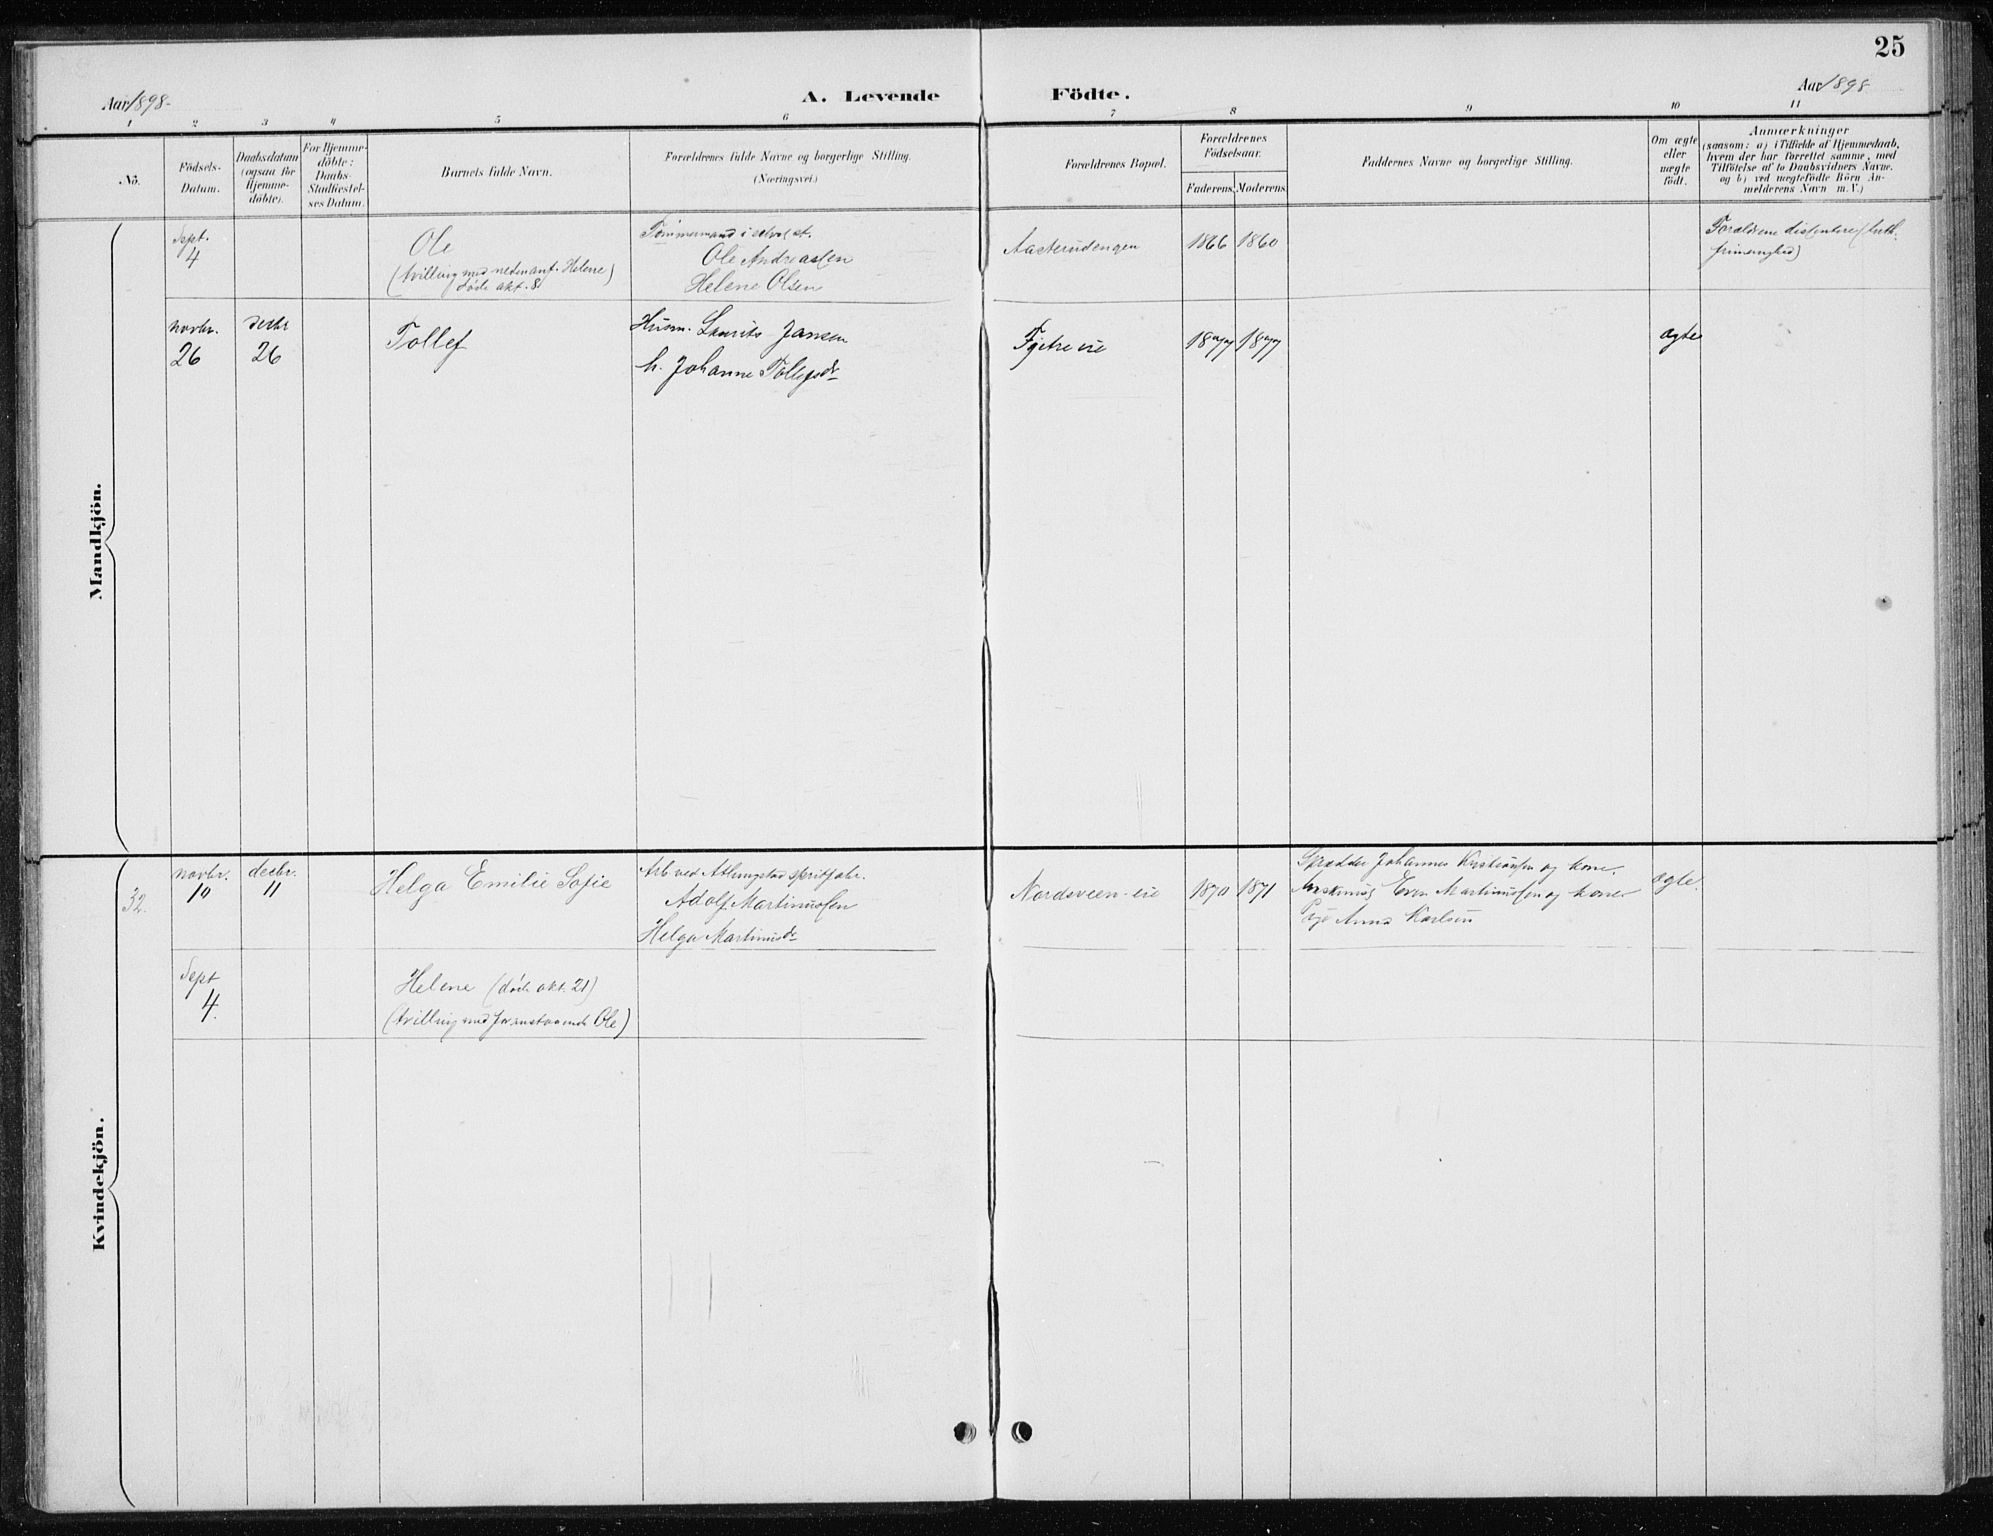 25
Aar 1898.
A. Levende
Födte.
Aar 1898
1 2 3 4 5 6 7 8 9 10 11
No.
Födsels-
Datum.
Daabsdatum
(ogsaa för
Hjemme-
döbte).
For Hjemme-
döbte:
Daabs-
Stadfæstel-
ses Datum.
Barnets fulde Navn.
Forældrenes fulde Navne og borgerlige Stilling.
(Næringsvei.)
Forældrenes Bopæl.
Forældrenes
Födselsaar.
Faderens. Moderens.
Faddernes Navne og borgerlige Stilling.
Om ægte
eller
uægte
födt.
Anmærkninger
(saasom: a) i Tilfælde af Hjemmedaab,
hvem der har forrettet samme, med
Tilföielse af to Daabsvidners Navne.
og b) ved uægtefödte Börn An-
melderens Navn m. V.)
Mandkjön.
Sept.
4
Ole
(tvilling med nedenanf. Helene)
döde okt. 8
Tömmermand i
Ole Andreassen
Helene Olsen
Aasterudengen
1866 1860
Forældrene dissentere (luth.
frimenighed)
novbr.
26
decbr
26
Tollef
Husm. Laurits Jansen
h. Johanne Tollefsdr
eie
1877 1877
ægte
Kvindekjön.
32.
novbr.
10
decbr.
11
Helga Emilie Sofie
Arb ved Atlungstad spritfabr.
Adolf Martinussen
Helga Martinusdr
Nordsveen-eie
1870 1871
Johannes Kristiansen og kone.
Even Martinussen og kone
Pige Anna Karlsen
ægte.
Sept
4.
Helene (död okt. 21)
(tvilling med foranstaaende Ole)